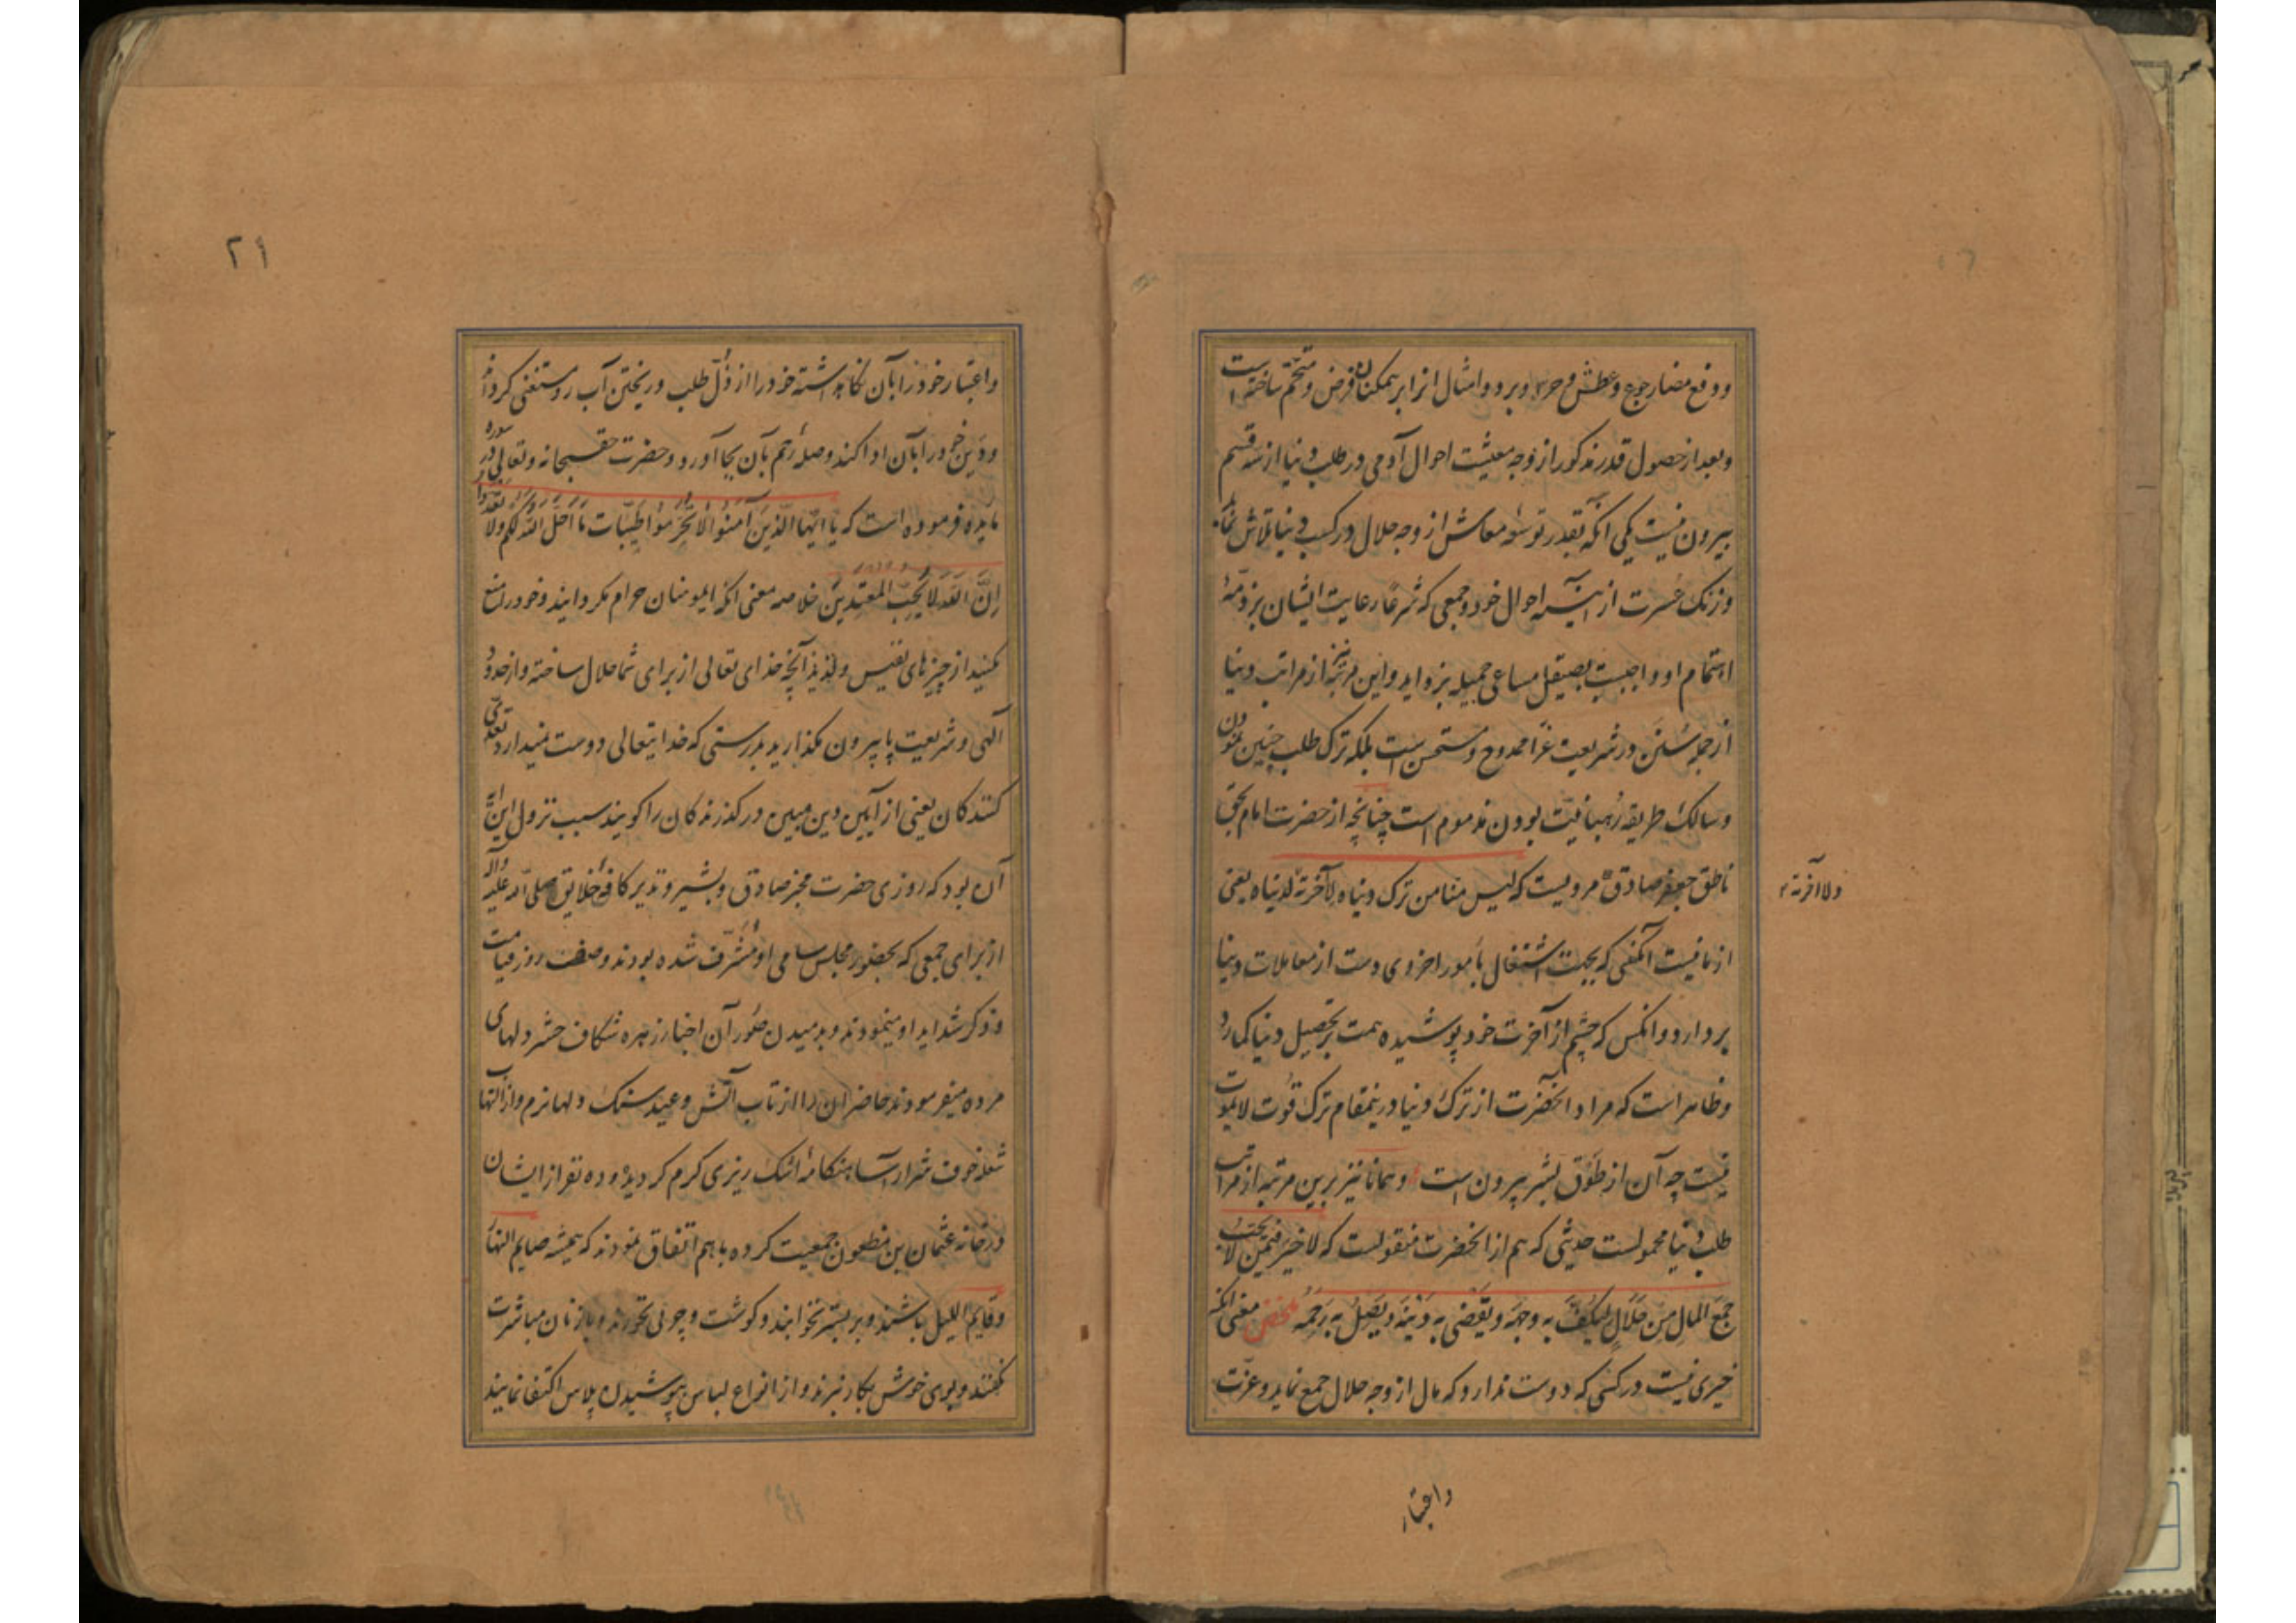 و دفع مضار جوع و عطش و حر و برد و امثال انرا بر همکنان فرض و متحتم ساخته است
و بعد از حصول قدر مذکور از وجه معیشت احوال آدمی در طلب دنیا از سه قسم
بیرون نیست یکی انکه بقدر توسعه معاش از وجه حلال در کسب دنیا تلاش نماید
و زنک عسرت از آینه احوال خود و جمعی که شرعا رعایت ایشان بر ذمه
اهتمام او واجبست بصیقل مساعی جمیله بزداید و این مرتبه نیز از مراتب دنیا
از جمله سنن در شریعت غرا ممدوح و مستحسن است بلکه ترک طلب چنین نمودن
و سالک طریقه رهبانیت بودن مذموم است چنانچه از حضرت امام بحق
ناطق جعفر صادق مرویست که لیس منا من ترک دنیاه لآخرته لدنیاه یعنی
ولا آخرته
از ما نیست آنکسی که بجهت اشتغال بامور اخروی دست از معاملات دنیا
بردارد و انکس که چشم از آخرت خود پوشیده همت بر تحصیل دنیا کمارد
و ظاهر است که مراد آنحضرت از ترک دنیا درینمقام ترک قوت لایموت
نیست چه آن از طوق بشر بیرون است و همانا نیز برین مرتبه از مراتب
طلب دنیا محمولست حدیثی که هم از انحضرت منقولست که لا خیر فیمن لا یحب
جمع المال من حلال لیکف به وجهه و یقضی به دینه و یصل به رحمه ملخص معنی انکه
خیری نیست در کسی که دوست ندارد که مال از وجه حلال جمع نماید و عزت
و اعتبار
۲۱
و اعتبار خود را بآن نکاه داشته خود را از ذل طلب و ریختن آب رو مستغنی کرداند
و دین خود را بآن ادا کند و صله رحم بآن بجا آورد و حضرت حق سبحانه و تعالی در سوره
مایده فرموده است که یا ایها الذین آمنوا لا تحرموا طیبات ما احل الله لکم ولا تعتدوا
ان الله لا یحب المعتدین خلاصه معنی انکه ایمومنان حرام مکردانید و خود را منع
مکنید از چیزهای نفیس و لذیذ آنچه خدای تعالی از برای شما حلال ساخته و از حدود
آلهی و شریعت پا بیرون مکذارید بدرستی که خدا یتعالی دوست نمیدارد تعدی
کنندکان یعنی از آیین دین مبین درکذرندکان را کویند سبب نزول این آیه
آن بود که روزی حضرت مخبر صادق و بشیر و نذیر کافه خلایق صلی الله علیه و اله
از برای جمعی که بحضور مجلس سامی او مشرف شده بودند وصف روز قیامت
و ذکر شداید او مینمودند و بدمیدن صور آن اخبار زهره شکاف حشر دلهای
مرده میفرمودند حاضران را از تاب آتش وعید سنک دلها نرم و از التهاب
شعله خوف شرار آسا هنکامه اشک ریزی کرم کردید و ده نفر از ایشان
در خانه عثمان بن مظعون جمعیت کرده با هم اتفاق نمودند که همیشه صایم النهار
و قایم اللیل باشند و بر بستر نخوابند و کوشت و چربی نخورند و با زنان مباشرت
نکنند و بوی خوش بکار نبرند و از انواع لباس بپوشیدن پلاس اکتفا نمایند